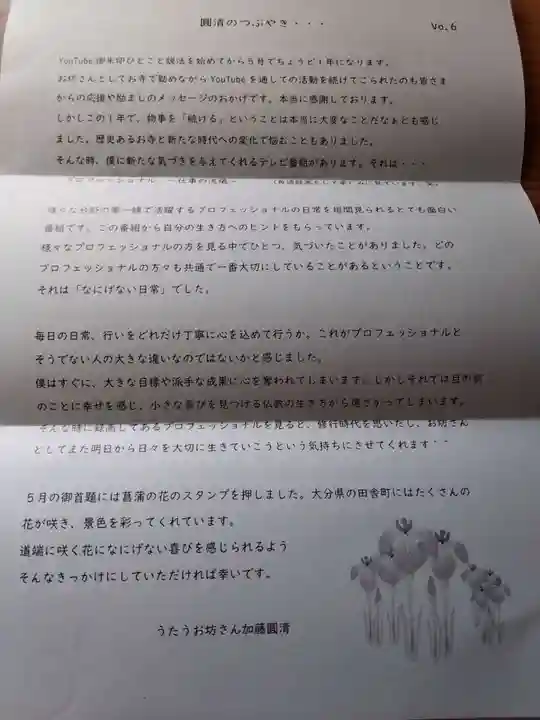 圓清のつぶやき・・・
Vo.6
YouTube御朱印ひとこと説法を始めてから5月でちょうど1年になります。
お坊さんとしてお寺で勤めながらYouTubeを通しての活動を続けてこられたのも皆さま
からの応援や励ましのメッセージのおかげです。本当に感謝しております。
しかしこの1年で、物事を「続ける」ということは本当に大変なことだなぁとも感じ
ました。歴史あるお寺と新たな時代への変化で悩むこともありました。
そんな時、僕に新たな気づきを与えてくれるテレビ番組があります。それは・・・
プロフェッショナル 〜仕事の流儀〜
様々な分野の第一線で活躍するプロフェッショナルの日常を垣間見られるとても面白い
番組です。この番組から自分の生き方へのヒントをもらっています。
様々なプロフェッショナルの方を見る中でひとつ、気づいたことがありました。どの
プロフェッショナルの方々も共通で一番大切にしていることがあるということです。
それは「なにげない日常」でした。
毎日の日常、行いをどれだけ丁寧に心を込めて行うか。これがプロフェッショナルと
そうでない人の大きな違いなのではないかと感じました。
僕はすぐに、大きな目標や派手な成果に心を奪われてしまいます。しかしそれでは目の前
のことに幸せを感じ、小さな喜びを見つける仏教の生き方から遠ざかってしまいます。
そんな時に録画してあるプロフェッショナルを見ると、修行時代を思いだし、お坊さん
としてまた明日から日々を大切に生きていこうという気持ちにさせてくれます・・
5月の御首題には菖蒲の花のスタンプを押しました。大分県の田舎町にはたくさんの
花が咲き、景色を彩ってくれています。
道端に咲く花になにげない喜びを感じられるよう
そんなきっかけにしていただければ幸いです。
うたうお坊さん加藤圓清